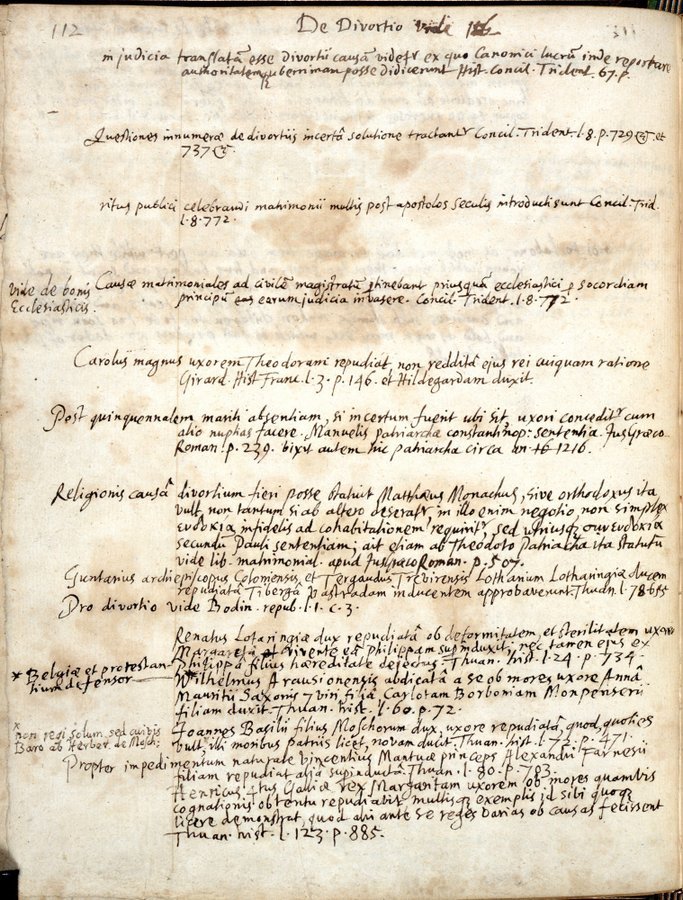 112
De Divortio vide 116
in judicia translatam esse divortii causam videtr ex quo Canonici lucrū inde reportare
authoritatem uberrimam posse didicerunt Hist. Concil. Trident. 67. p.
Quæstiones innumeræ de divortiis incertâ solutione tractantr Concil. Trident. l. 8. p. 729 et
737
ritus publici celebrandi matrimonii multis post apostolos seculis introducti sunt Concil. Trid.
l. 8. 772.
vide de bonis
Ecclesiasticis.
Causæ matrimoniales ad civilē magistratū ptinebant priusquā ecclesiastici p socordiam
principū eas earum judicia invasere. Concil. Trident. l. 8. 772.
Carolus magnus uxorem Theodoram repudiat, non redditâ ejus rei cuiquam ratione
Girard. Hist. Franc. l. 3. p. 146. et Hildegardam duxit.
Post quinquennalem mariti absentiam, si incertum fuerit ubi sit, uxori conceditr cum
alio nuptias facere. Manuelis patriarchæ constantinop: sententia. Jus Græco-
Roman. p. 239. vixit autem hic patriarcha circa an 1216.
Religionis causâ divortium fieri posse statuit Matthæus Monachus, sive orthodoxus ita
vult, non tantum si ab altero deseratr, in illo enim negotio, non simplex
ευδοκία infidelis ad cohabitationem requiritr, sed utriusq συνευδοκία
secundū Pauli sententiam; ait etiam ab Theodoto Patriarcha ita statutū
vide lib. matrimonial. apud Jus Græco Roman. p. 507.
Guntarius archiepiscopus Coloniensis, et Tergaudus Trevirensis Lotharium Lotharingiæ ducem
repudiatâ Tibergâ Valdradam inducentem approbaverunt. Thuan. l. 78.
Pro divortio vide Bodin. repub. l. 1. c. 3.
Renatus Lotaringiæ dux repudiatâ ob deformitatem, et sterilitatem uxore
Margaretâ vivente eâ philippam supinduxit, nec tamen ejus ex
Philippâ filius hæreditate dejectus. Thuan. hist. l. 24. p. 734.
* Belgiæ et protestan-
tium defensor
Wilhelmus Arausionensis abdicatâ a se ob mores uxore Annâ
Mauritii Saxonis 7 viri filiâ, Carlotam Borboniam Monpenserii
filiam duxit. Thuan. hist. l. 60. p. 72.
Joannes Basilii filius Moschorum dux, uxore repudiatâ, quod, quoties
vult, illi moribus patriis licet, novam ducit. Thuan. hist. l. 72. p. 471.
* non regi solum sed cuivis
Baro ab Herber. de Mosch:
Propter impedimentum naturale vincentius Mantuæ princeps Alexandri Farnesii
filiam repudiat aliâ supinductâ. Thuan. l. 80. p. 783.
Henricus 4tus Galliæ rex Margaritam uxorem ob mores quamvis
cognationis obtentu repudiavit multisq exemplis id sibi quoq
licere demonstrat, quod alii ante se reges varias ob causas fecissent
Thuan. hist. l. 123. p. 885.